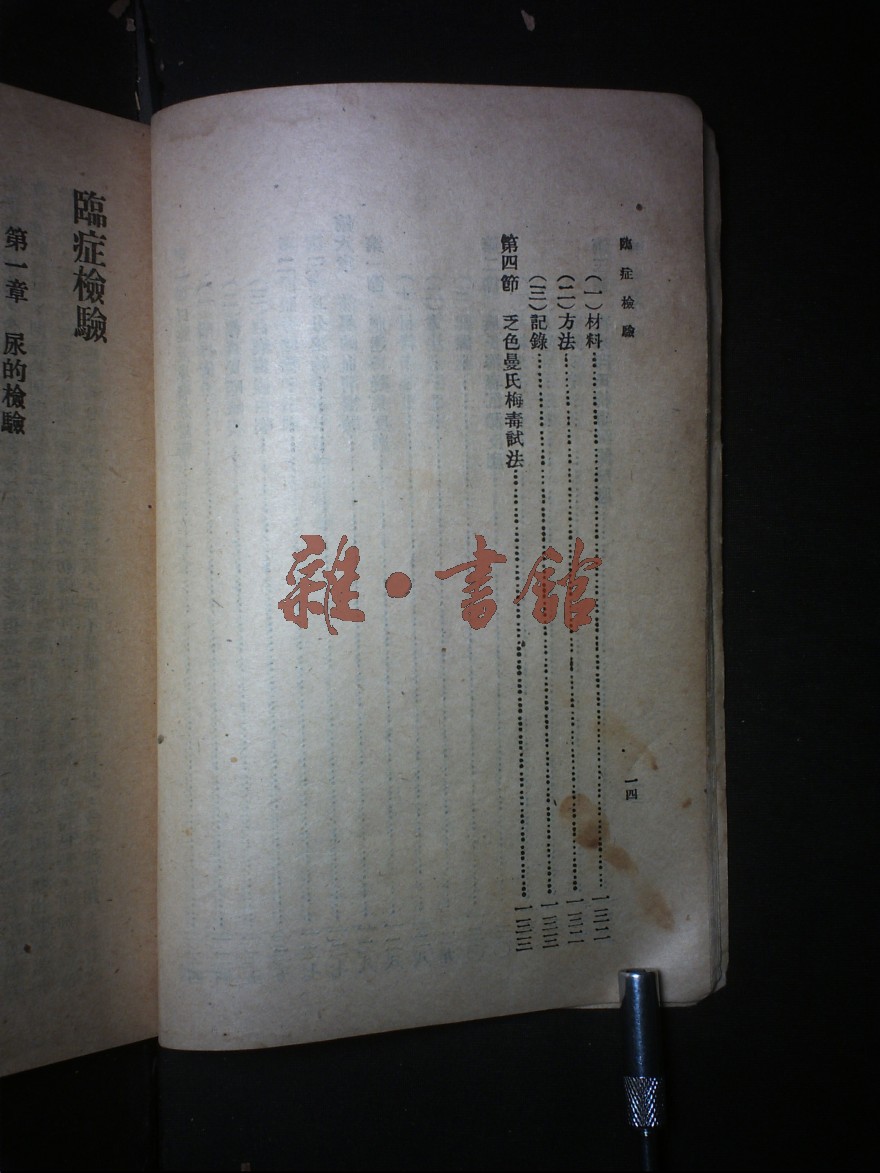 臨症檢驗
（一）材料……一三二
（二）方法……一三二
（三）記錄……一三三
第四節　乏色曼氏梅毒試法……一三三
一四
臨症檢驗
第一章　尿的檢驗
雜・書館